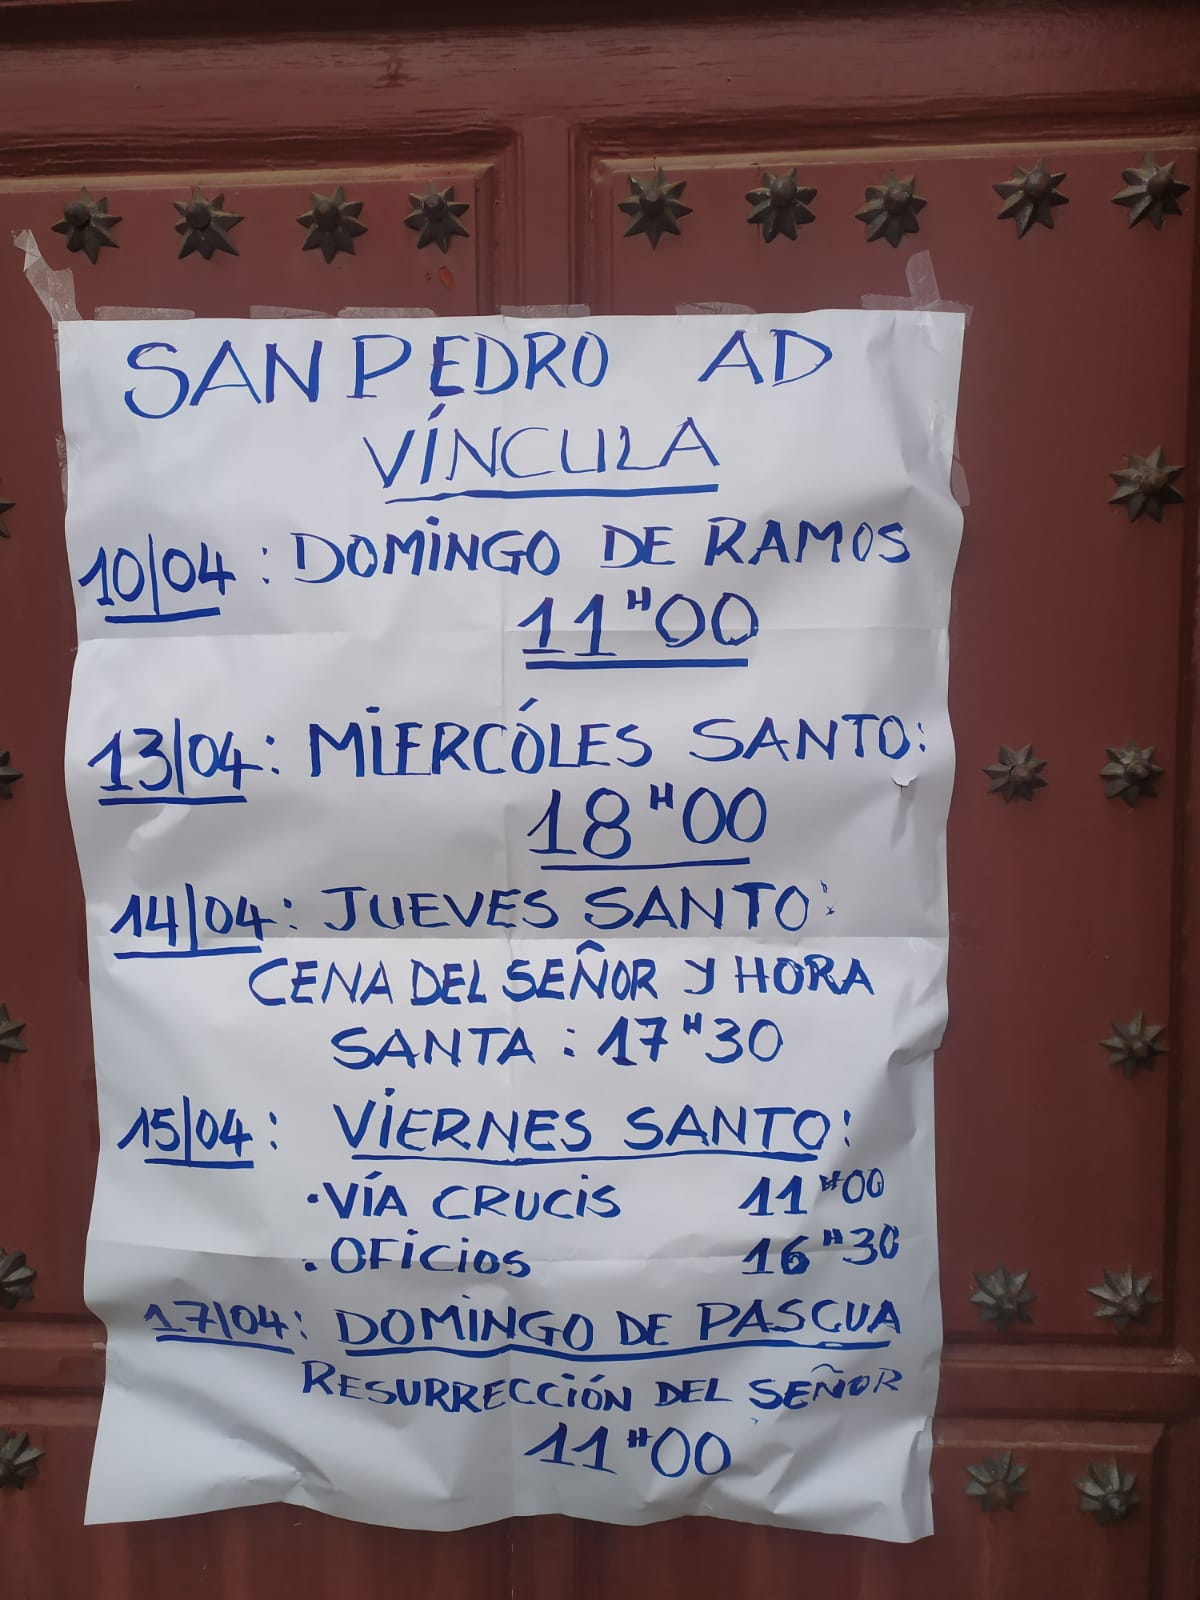 SAN PEDRO AD
VÍNCULA
10/04: DOMINGO DE RAMOS
11H00
13/04: MIERCÓLES SANTO:
18H00
14/04: JUEVES SANTO:
CENA DEL SEÑOR Y HORA
SANTA: 17H30
15/04: VIERNES SANTO:
·VÍA CRUCIS 11H00
. OFICIOS 16H30
17/04: DOMINGO DE PASCUA
RESURRECCIÓN DEL SEÑOR
11H00